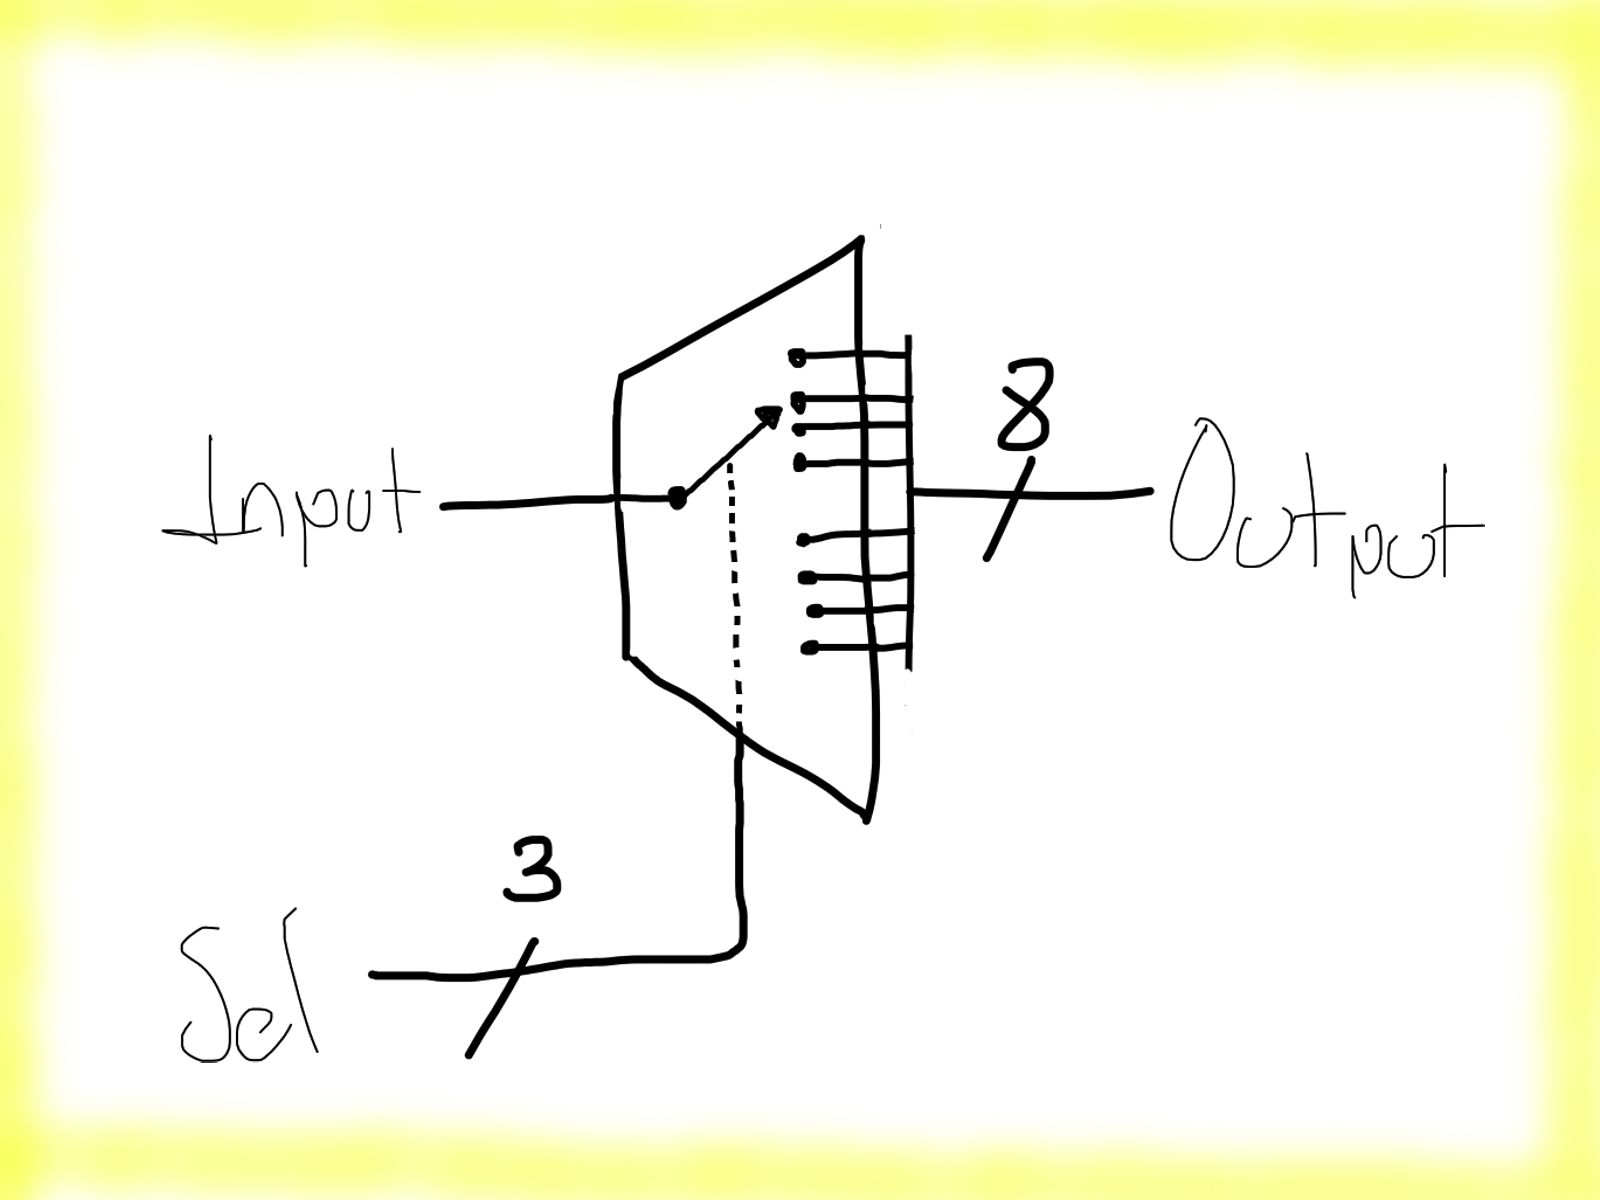 8
Input
Output
3
Sel